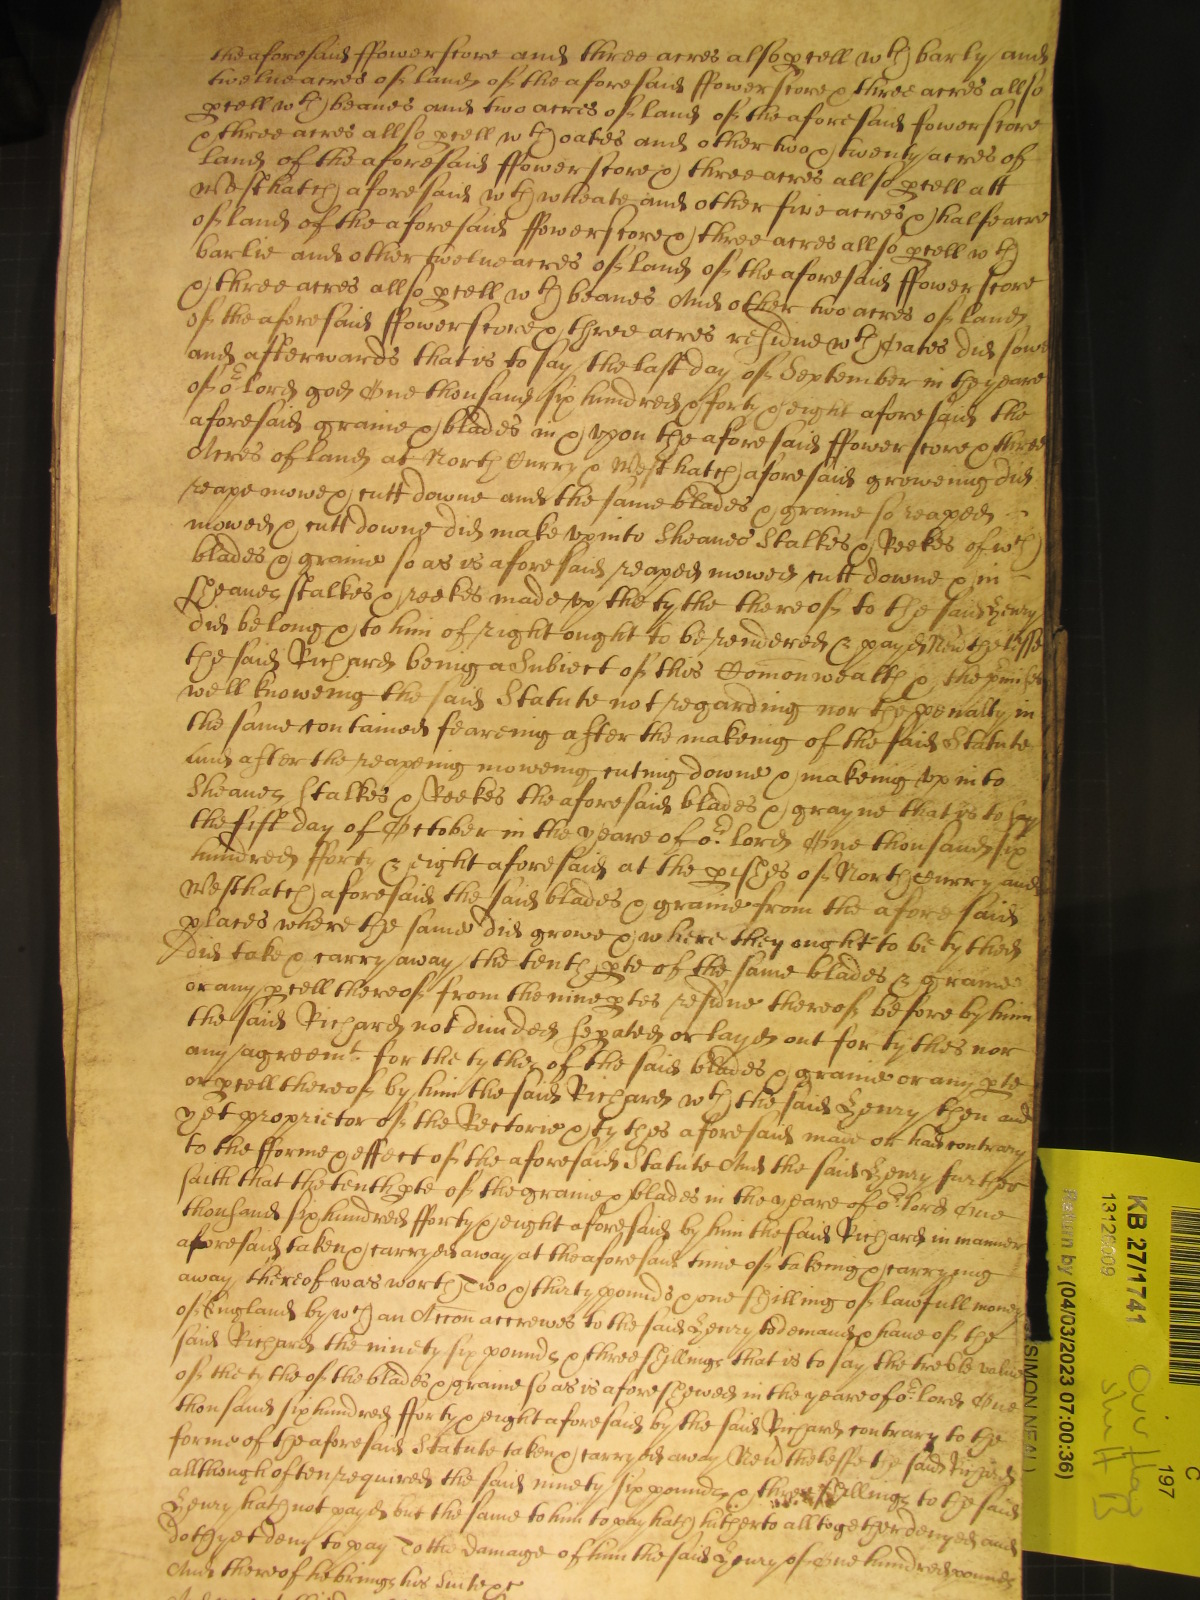 the aforesaid ffowerscore and three acres also pcell wth barly and
twelue acres of land of the aforesaid ffowerscore & three acres allso
pcell wth beanes and two acres of land of the aforesaid fowerscore
& three acres allso pcell wth oates and other two & twenty acres of
land of the aforesaid ffowerscore & three acres allso pcell att
Westhatch aforesaid wth wheate and other fiue acres & halfe acre
of land of the aforesaid ffowerscore & three acres allso pcell wth
barlie and other twelue acres of land of the aforesaid ffowerscore
& three acres allso pcell wth beanes And other two acres of land
of the aforesaid ffowerscore & three acres residue wth Oates did sowe
and afterwards that is to say the last day of September in the yeare
of or lord god One thousand six hundred & forty & eight aforesaid the
aforesaid graine & blades in & vpon the aforesaid ffowerscore & three
Acres of land at North Curry & Westhatch aforesaid groweing did
reape mowe & cutt downe and the same blades & graine so reaped
mowed & cutt downe did make vp into Sheaues Stalkes & Reekes of wch
blades & graine so as is aforesaid reaped mowed cutt downe & in
sheaues stalkes & reekes made vp the tythe thereof to the said Henry
did belong & to him of right ought to be rendered & payd Neuthelesse
the said Richard being a Subiect of this Comonwealth & the pmisses
well knoweing the said Statute not regarding nor the penalty in
the same contained feareing after the makeing of the said Statute
and after the reapeing moweing cuting downe & makeing vp into
Sheaues Stalkes & Reekes the aforesaid blades & grayne that is to say
the fift day of October in the yeare of or lord One thousand six
hundred fforty & eight aforesaid at the pishes of North Curry and
Westhatch aforesaid the said blades & graine from the aforesaid
places where the same did growe & where they ought to be tythed
did take & carry away the tenth pte of the same blades & graine
or any pcell thereof from the nine ptes residue thereof before by him
the said Richard not diuided sepated or layd out for tythes nor
any agreemt. for the tythes of the said blades & graine or any pte
or pcell thereof by him the said Richard wth the said Henry then and
yet proprietor of the Rectorie & tythes aforesaid made or had contrary
to the fforme & effect of the aforesaid Statute And the said Henry further
saith that the tenth pte of the graine & blades in the yeare of or lord One
thousand six hundred fforty & eight aforesaid by him the said Richard in manner
aforesaid taken & carryed away at the aforesaid time of takeing & carrying
away thereof was worth Two & thirty pounds & one shilling of lawfull money
of England by wch an Accon accrewes to the said Henry to demand & haue of the
said Richard the ninety six pounds & three shillings that is to say the treble value
of the tythe of the blades & graine so as is aforeshewed in the yeare of or lord One
thousand six hundred fforty & eight aforesaid by the said Richard contrary to the
forme of the aforesaid Statute taken & carryed away Neuthelesse the said Richard
allthough often required the said ninety six pounds & three shillings to the said
Henry hath not payd but the same to him to pay hath hitherto alltogether denyed and
doth yet deny to pay To the damage of him the said Henry of One hundred pounds
And thereof he brings his Suite &c
KB 27/1741
13123009
Return by (04/03/2023 07:00:36)
SIMON NEAL
C
197